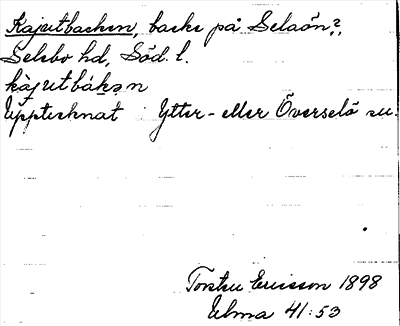 Kajutbacken, backe på Selaön?,
Selebo hd, Söd. l.
kàjutbák̬ən
Upptecknat i Ytter- eller Överselö sn.
Torsten Ericsson 1898
Ulma 41:53